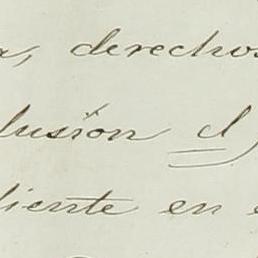 a, derechos
lusión el
diente en e